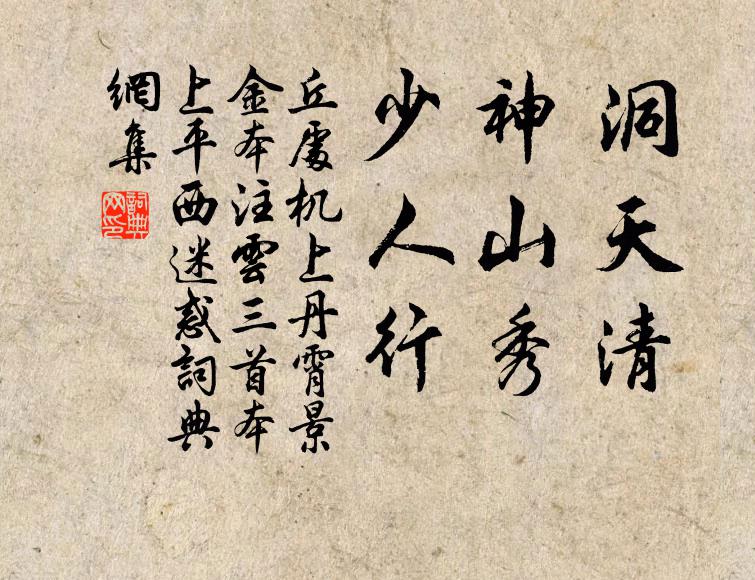 洞天清
神山秀
少人行
丘處机上丹霄景
金本注雲三首本
上平西迷惑詞典
網集
詞典網印